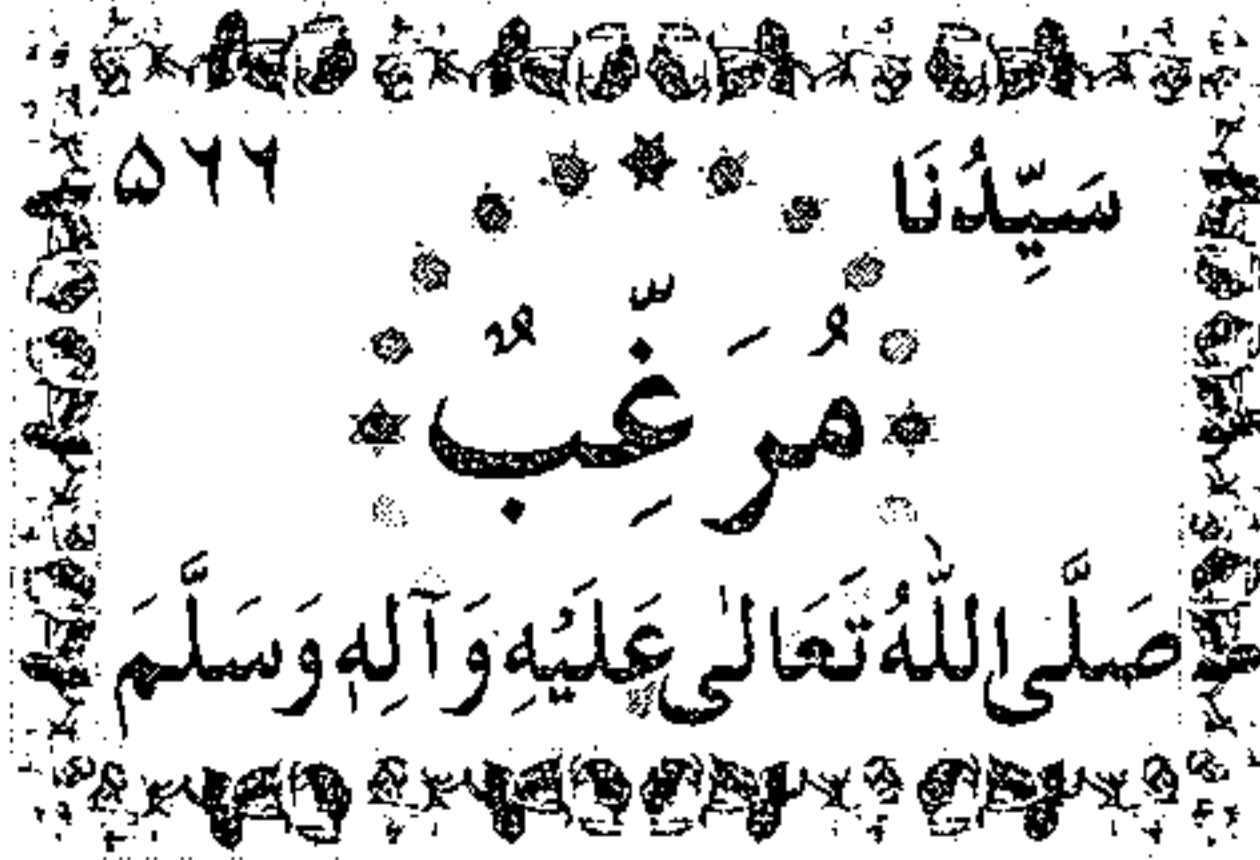 سَيِّدُنَا ۵۶۶
مُرَغِّبٌ
صَلَّى اللّٰهُ تَعَالٰى عَلَيْهِ وَآلِهٖ وَسَلَّمَ